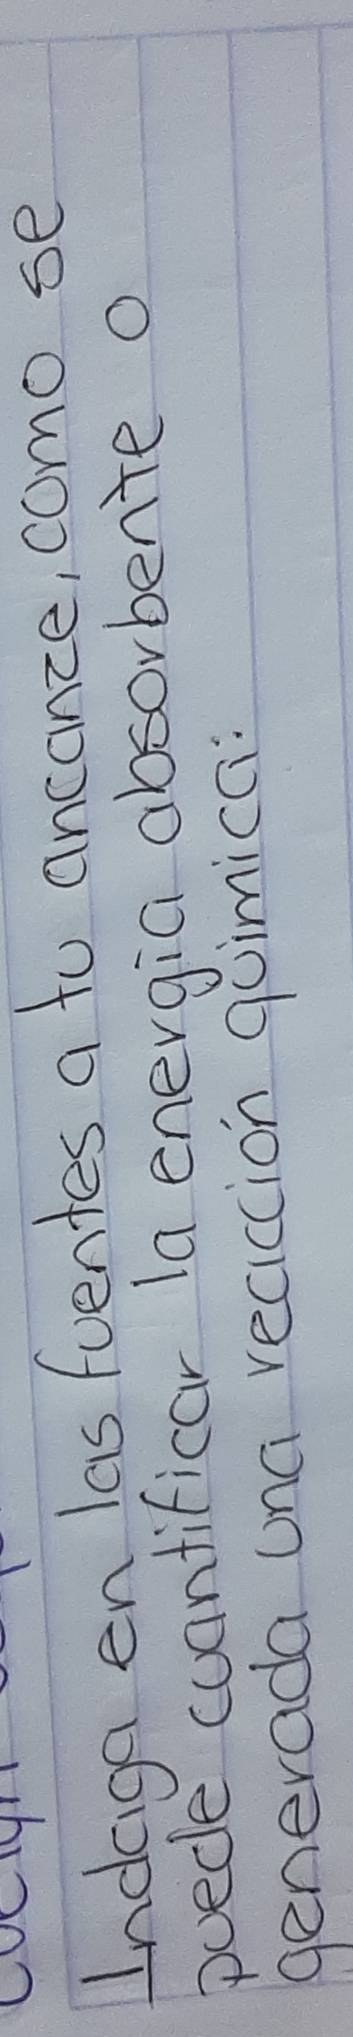 Indaga en las fuentes a tu ancanze, como se
puede cuantificar la energia absorbente o
generada una reacción quimica: